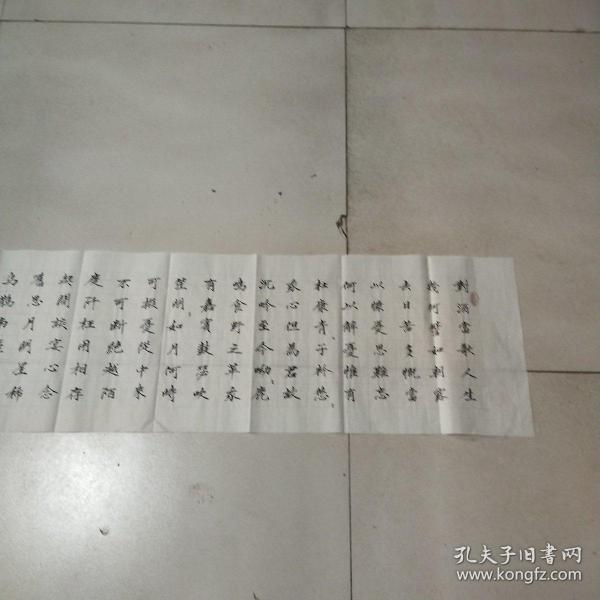 對酒當歌人生
幾何譬如朝露
去日苦多慨當
以慷憂思難忘
何以解憂惟有
杜康青子衿悠
我心但為君故
沉吟至今呦鹿
鳴食野之苹我
有嘉賓鼓瑟吹
笙明如月何時
可掇憂從中來
不可斷絕越陌
度阡枉用相存
契闊談宴心念
舊恩月明星稀
烏鵲南
孔夫子旧書网
www.kongfz.com